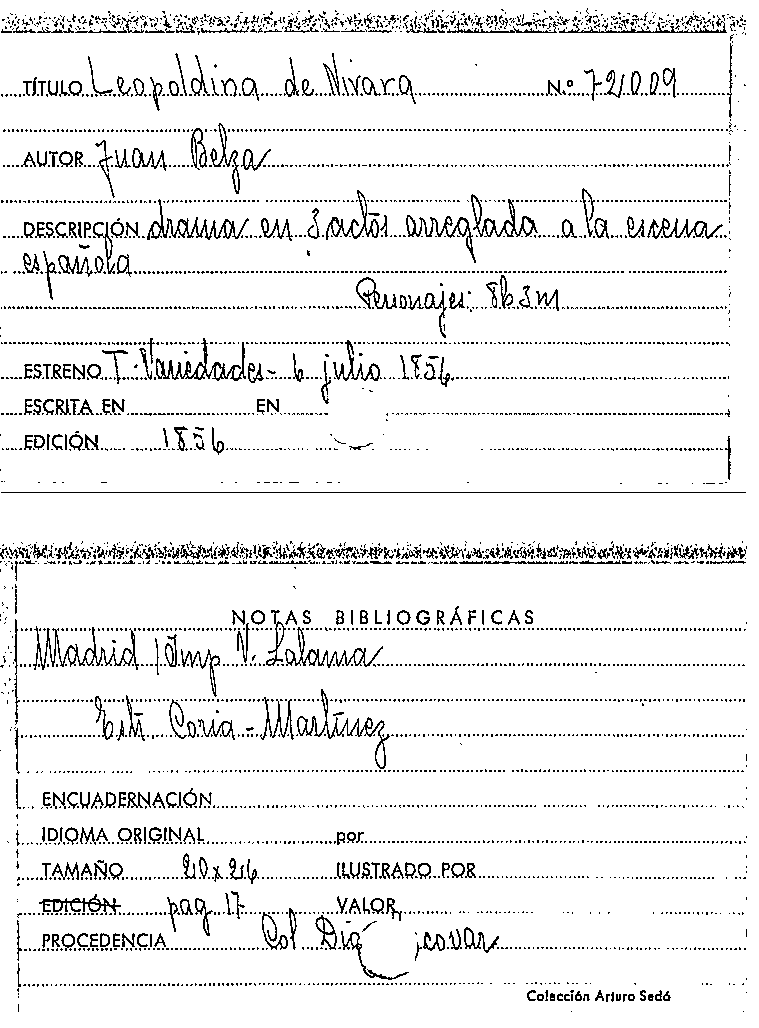 TÍTULO Leopoldina de Nivara N.º 721009
AUTOR Juan Belza
DESCRIPCIÓN drama en 3 actos arreglada a la escena
española
Personajes: 8h 3m
ESTRENO T. Variedades - 6 julio 1856
ESCRITA EN EN
EDICIÓN 1856
NOTAS BIBLIOGRÁFICAS
Madrid / Imp V. Lalama
Coria - Martínez
ENCUADERNACIÓN
IDIOMA ORIGINAL por
TAMAÑO 20 x 26 ILUSTRADO POR
EDICIÓN pag 17 VALOR
PROCEDENCIA Col
Colección Arturo Sedó